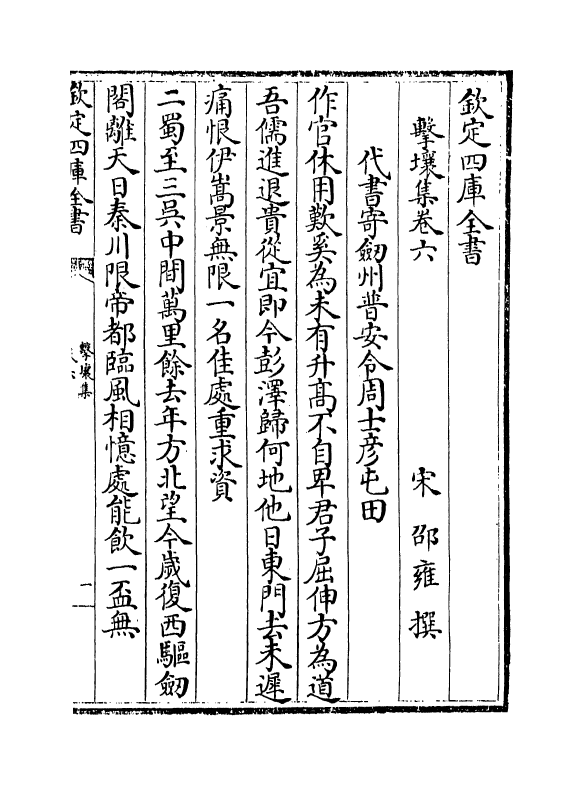 欽定四庫全書
擊壤集卷六
宋 邵雍 撰
代書寄劔州普安令周士彦屯田
作官休用歎奚為未有升髙不自卑君子屈伸方為道
吾儒進退貴從宜即今彭澤歸何地他日東門去未遲
痛恨伊嵩景無限一名佳處重求資
二蜀至三吳中間萬里餘去年方北望今歲復西驅劔
閣離天日秦川限帝都臨風相憶處能飲一盃無
欽定四庫全書
擊壤集
一